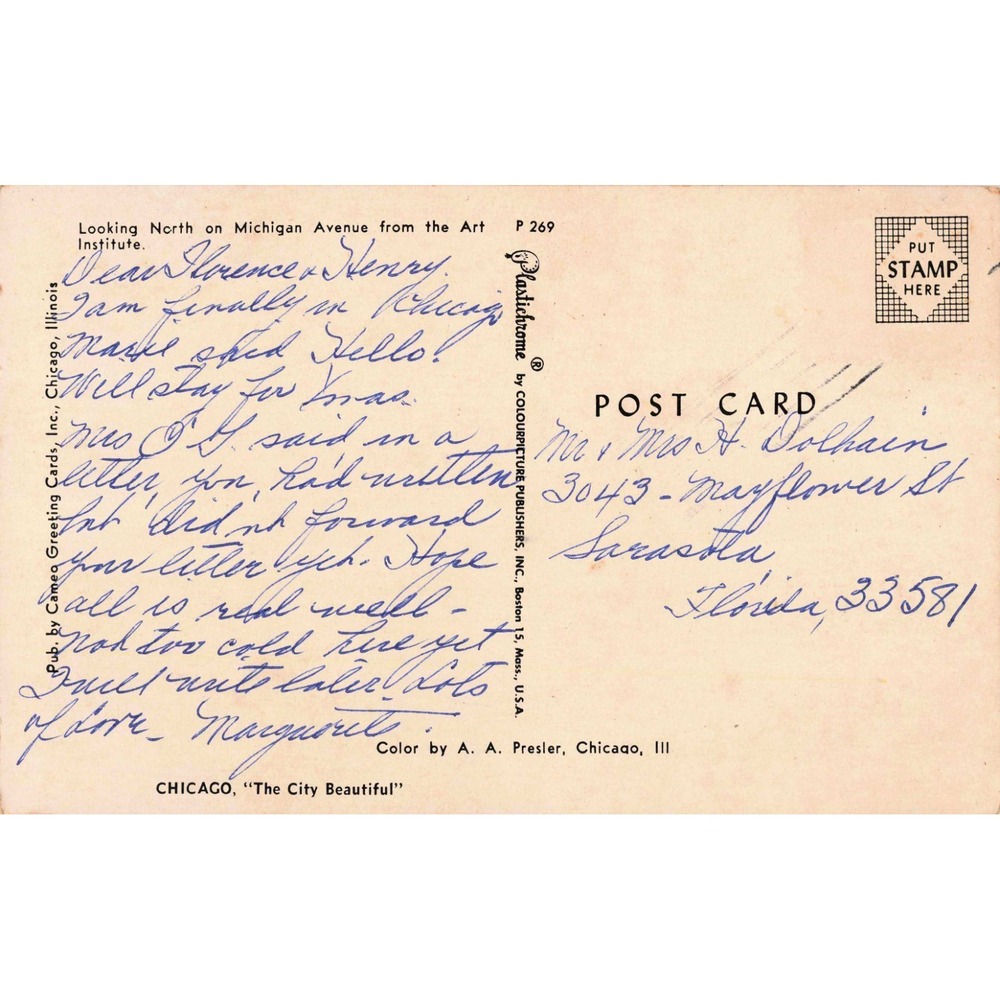 Looking North on Michigan Avenue from the Art
Institute.
P 269
Dear Florence & Henry.
I am finally in Chicago
Marie said Hello.
Will stay for Xmas.
Mrs O'G. said in a
letter, you, had written
but did nt forward
your letter yet. Hope
all is real well -
not too cold here yet
I will write later. Lots
of Love - Marguerite.
Pub. by Cameo Greeting Cards, Inc., Chicago, Illinois
Plastichrome ® by COLOURPICTURE PUBLISHERS, INC., Boston 15, Mass., U.S.A.
PUT
STAMP
HERE
POST CARD
Mr & Mrs H. Dolhain
3043 - Mayflower St
Sarasota,
Florida, 33581
Color by A. A. Presler, Chicago, Ill
CHICAGO, "The City Beautiful"